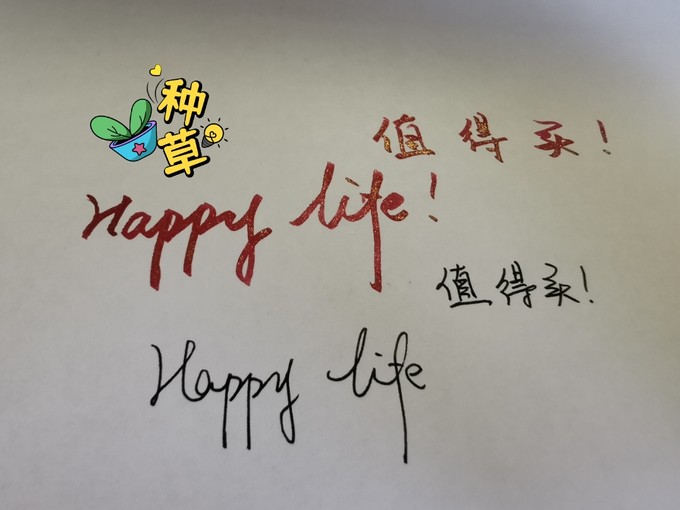 种草
值得买！
Happy life!
值得买！
Happy life